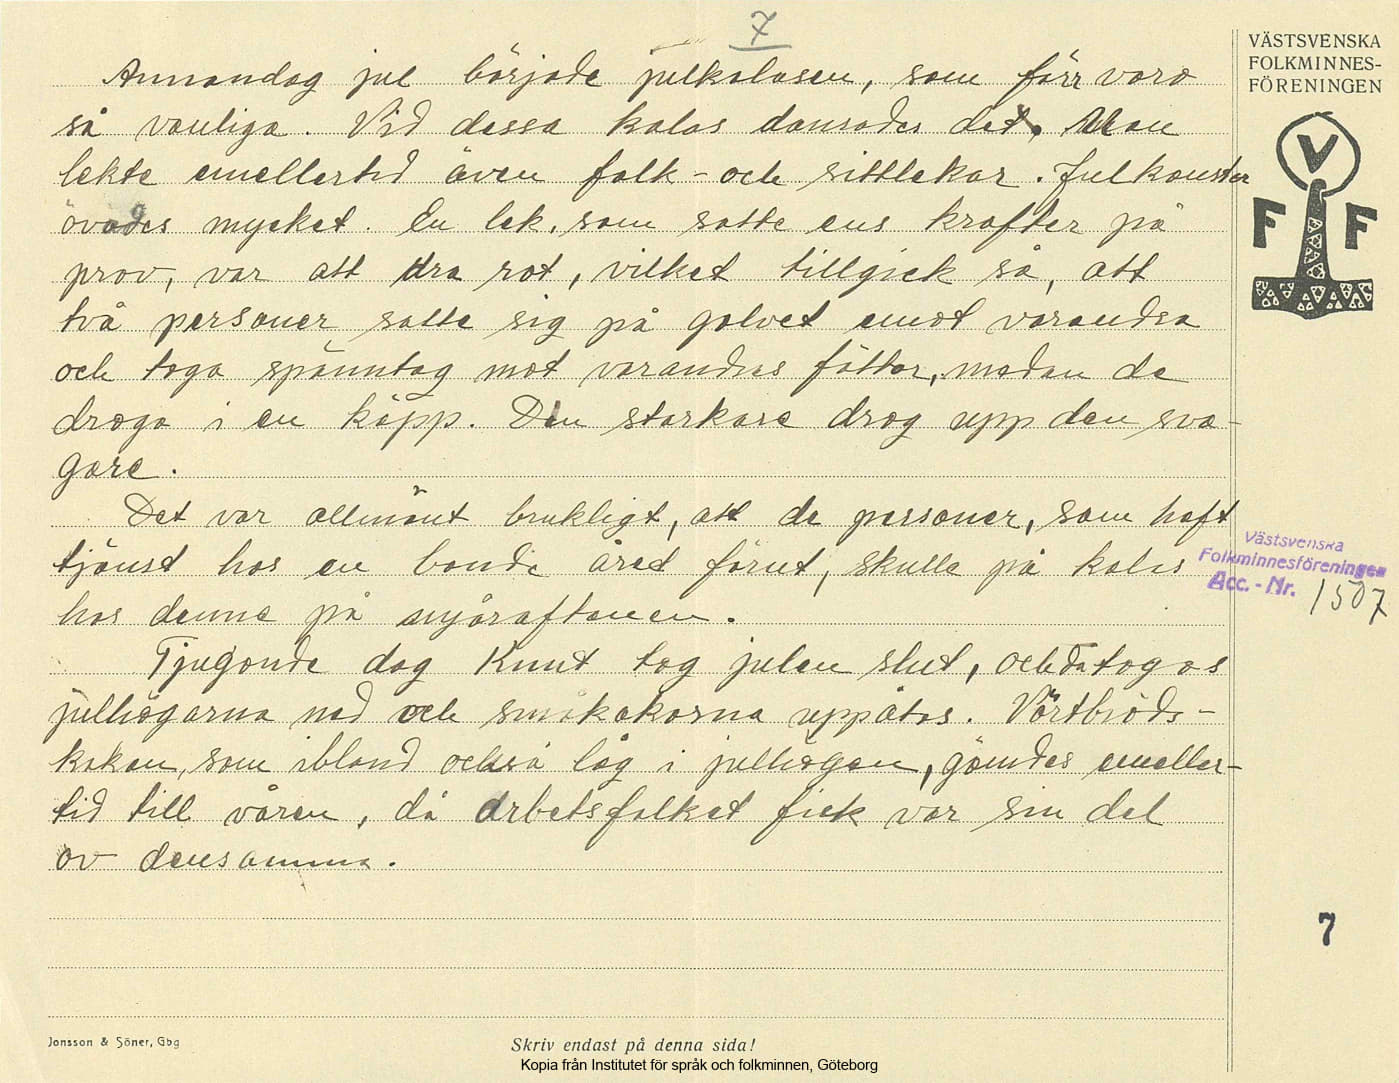 7
VÄSTSVENSKA
FOLKMINNES-
FÖRENINGEN
V
F F
Annandag jul började julkalasen, som förr voro
så vanliga. Vid dessa kalas dansades det. Man
lekte emellertid även folk- och sittlekar. Julkonster
övades mycket. En lek, som satte ens krafter på
prov, var att dra rot, vilket tillgick så, att
två personer satte sig på golvet emot varandra
och togo spänntag mot varandras fötter, medan de
drogo i en käpp. Den starkare drog upp den sva-
gare.
Det var allmänt brukligt, att de personer, som haft
tjänst hos en bonde året förut, skulle på kalas
hos denne på nyårsaftonen.
Tjugonde dag Knut tog julen slut, och då togos
julhögarna ned och småkakorna uppåtos. Vörtbröds-
kakan, som ibland också låg i julhögen, gömdes emeller-
tid till våren, då arbetsfolket fick var sin del
av densamma.
Västsvenska
Folkminnesföreningen
Acc. - Nr. 1507
7
Jonsson & Söner, Gbg
Skriv endast på denna sida!
Kopia från Institutet för språk och folkminnen, Göteborg